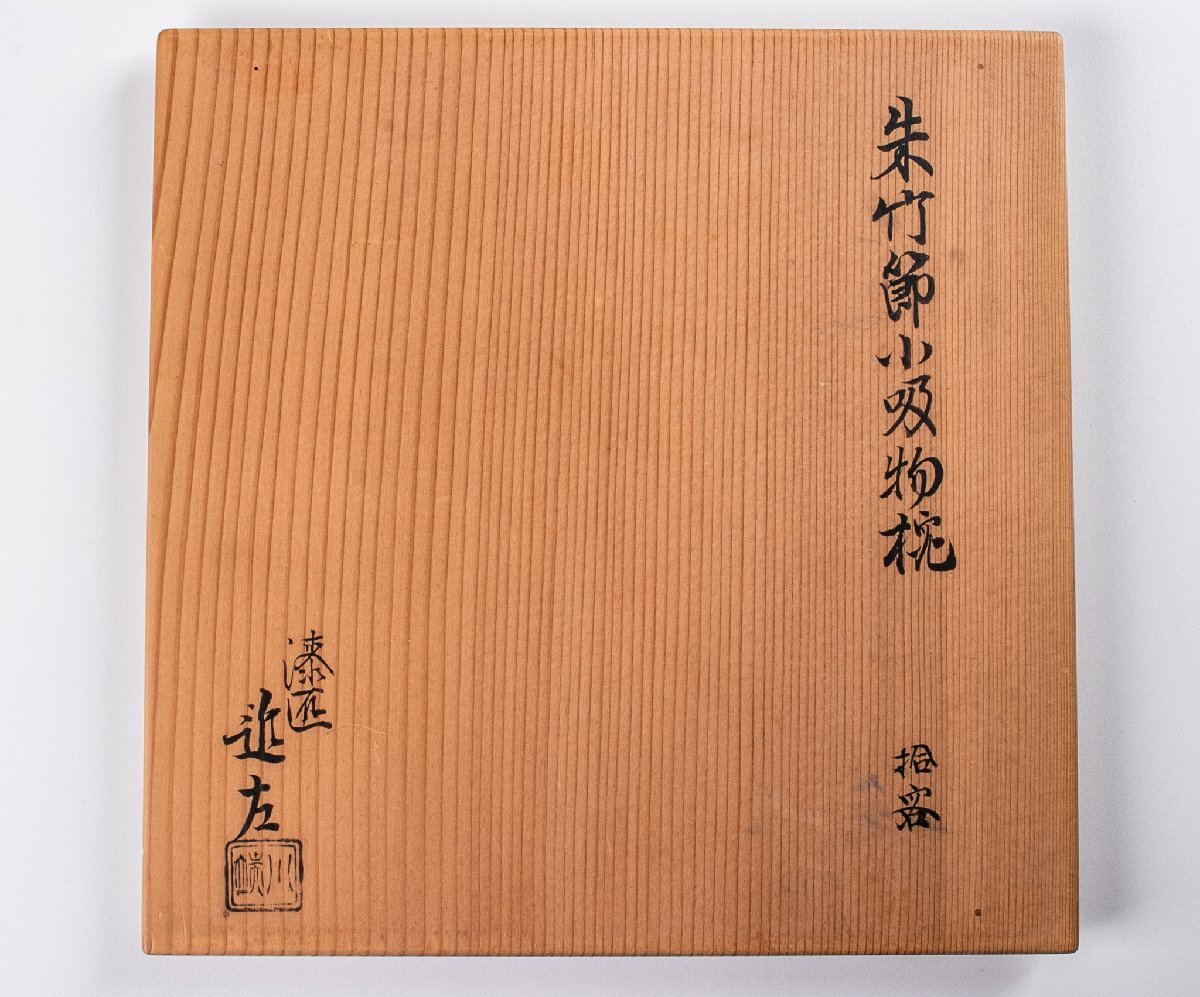 朱竹節小吸物椀
拾客
漆匠
近左
川端